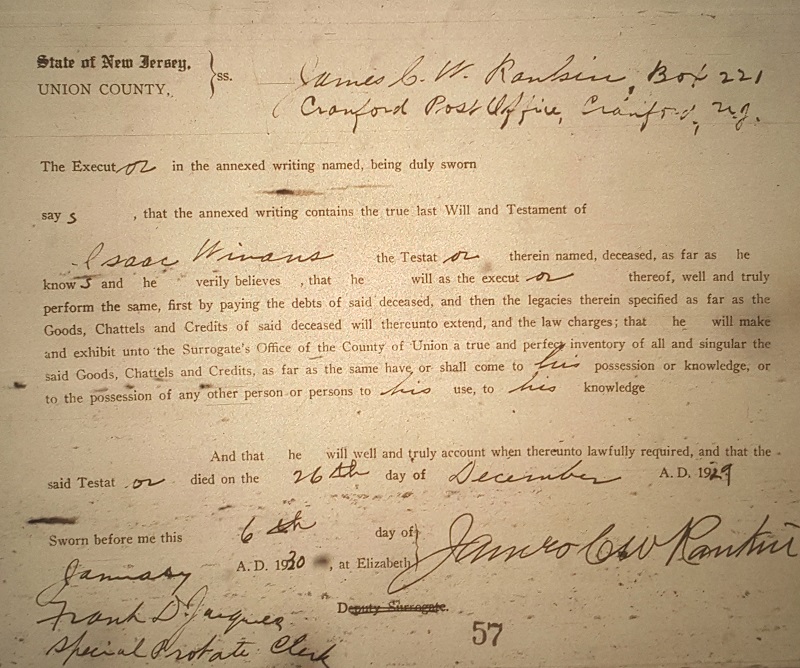 State of New Jersey, }ss. James C. W. Rankin, Box 221
UNION COUNTY, Cranford Post Office, Cranford, N.J.
The Execut or in the annexed writing named, being duly sworn
say s , that the annexed writing contains the true last Will and Testament of
Isaac Winans the Testat or therein named, deceased, as far as he
know s and he verily believes , that he will as the execut or thereof, well and truly
perform the same, first by paying the debts of said deceased, and then the legacies therein specified as far as the
Goods, Chattels and Credits of said deceased will thereunto extend, and the law charges; that he will make
and exhibit unto the Surrogate's Office of the County of Union a true and perfect inventory of all and singular the
said Goods, Chattels and Credits, as far as the same have or shall come to his possession or knowledge, or
to the possession of any other person or persons to his use, to his knowledge
And that he will well and truly account when thereunto lawfully required, and that the
said Testat or died on the 26th day of December A. D. 1929
Sworn before me this 6th day of } James C W Rankin
January A. D. 1930 , at Elizabeth
Frank D. Jaques Deputy Surrogate.
Special Probate Clerk 57